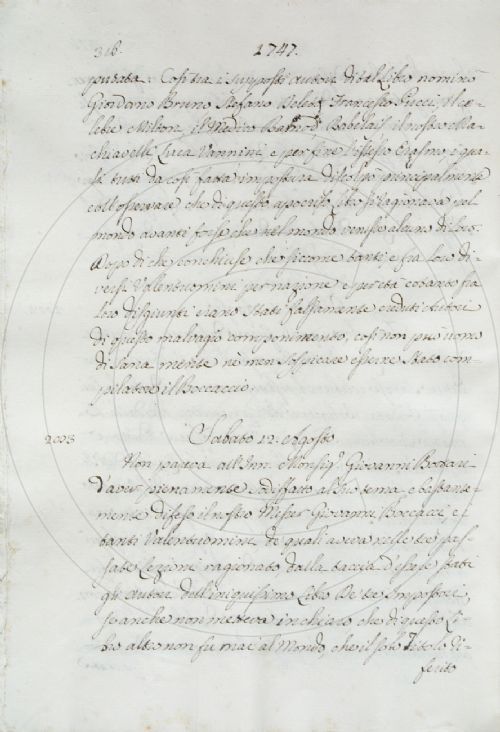 316. 1747.
putata. Così tra i supposti autori di tal Libro nominò
Giordano Bruno Stefano Dolet, Francesco Pucci, il ce-
lebre Milton, il Medico Bernardo Rabelais il nostro Ma-
chiavelli, Luca Vannini, e per fine l'istesso Erasmo, i qua-
li tutti da così fatta impostura discolpò principalmente
coll'osservare che di questo apocrifo Libro si ragionava pel
mondo avanti forse che nel mondo venisse alcuno di loro.
Dopo di che conchiuse che siccome tanti e fra loro di-
versi Valentuomini per nazione e per età cotanto fra
loro disgiunti erano stati falsamente creduti Autori
di questo malvagio componimento, così non può uomo
di sana mente nè men sospicare essere stato com-
pilatore il Boccaccio.
2003 Sabato 12. Agosto.
Non pareva all'Ill. Monsig. Giovanni Bottari
d'aver pienamente sodisfatto al suo tema, e bastante-
mente difeso il nostro Messer Giovanni Boccacci, e i
tanti Valentuomini de quali aveva nelle tre pas-
sate Lezioni ragionato dalla taccia d'essere stati
gli autori dell'iniquissimo Libro De tre Impostori,
se anche non metteva in chiaro che di questo Li-
bro altro non fu mai al Mondo, che il solo Titolo di-
ferito